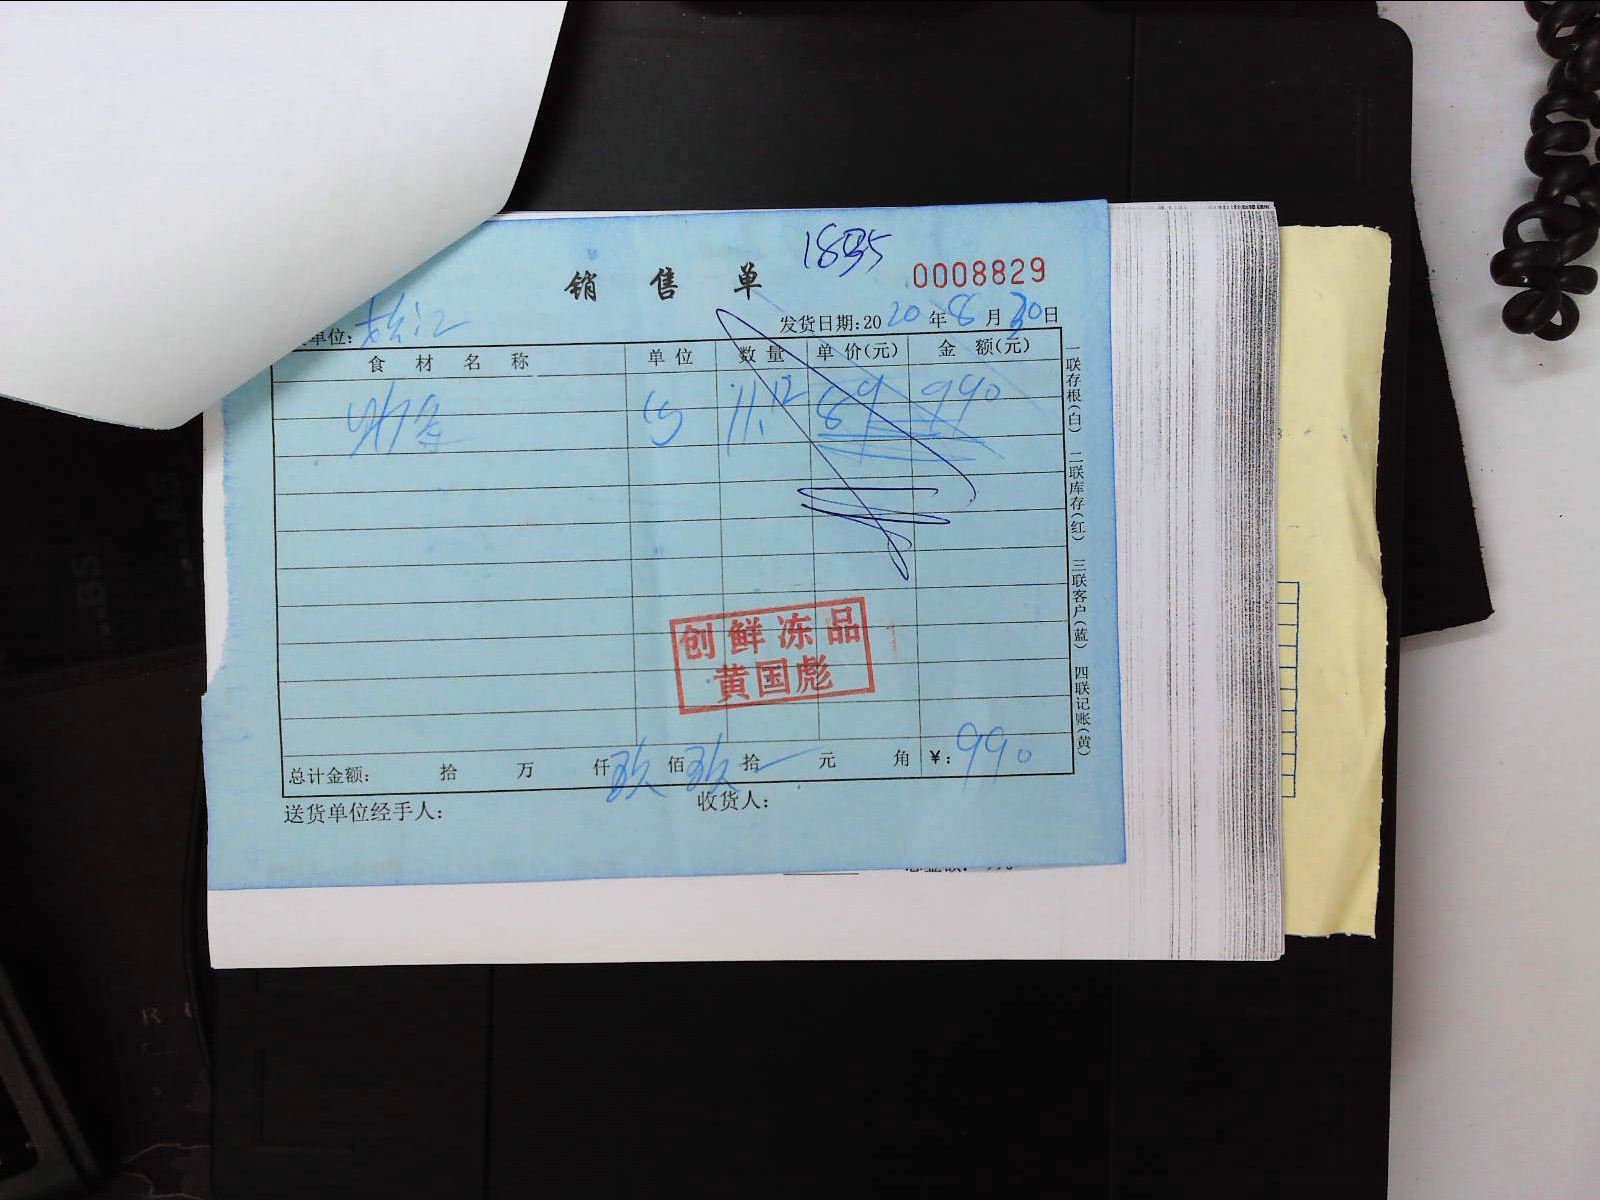 1835
销 售 单
0008829
单位:
发货日期:2020年8月30日
食 材 名 称 单 位 数 量 单 价(元) 金 额(元)
11.12 89 990
一联存根(白) 二联库存(红) 三联客户(蓝) 四联记账(黄)
创鲜冻品
黄国彪
总计金额: 拾 万 仟 玖 佰 玖 拾 元 角 ¥:990
送货单位经手人: 收货人: